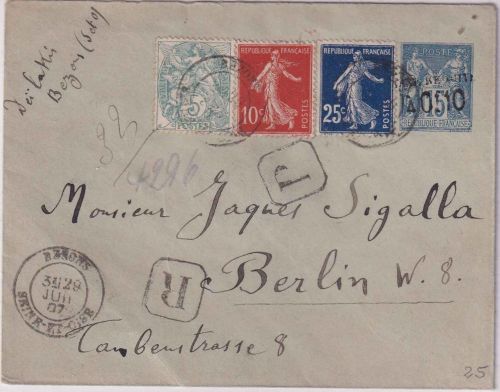 Bezons (S et O)
5c
POSTES
REPUBLIQUE FRANÇAISE
10c
POSTES
REPUBLIQUE FRANÇAISE
25c
POSTES
POSTE
REPUBLIQUE FRANÇAISE
4296
R
Monsieur Jaques Sigalla
Berlin W. 8.
Taubenstrasse 8
R
BEZONS
29
JUIL
07
SEINE-ET-OISE
25